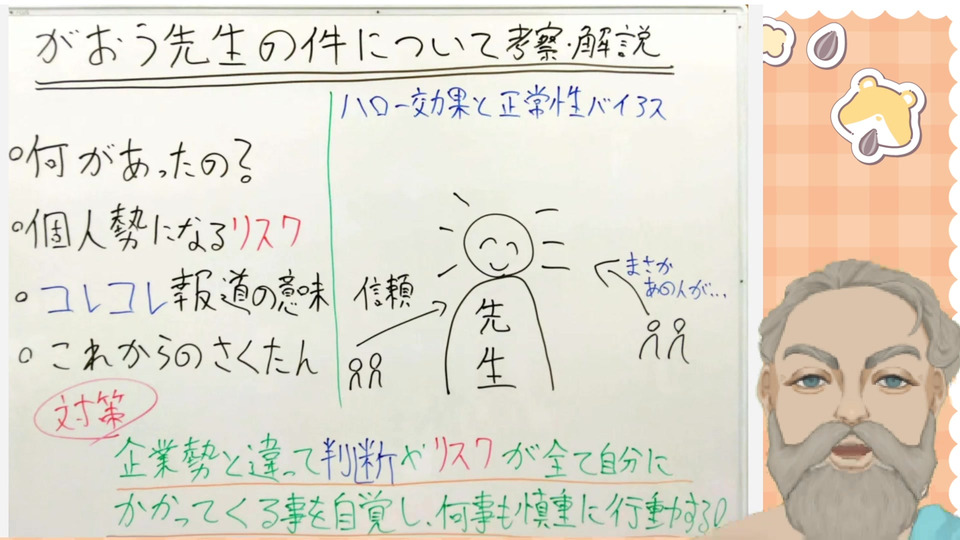 がおう先生の件について考察・解説
○何があったの?
○個人勢になるリスク
○コレコレ報道の意味
○これからのさくたん
ハロー効果と正常性バイアス
信頼
先生
まさか
あの人が...
対策
企業勢と違って判断やリスクが全て自分に
かかってくる事を自覚し、何事も慎重に行動する!